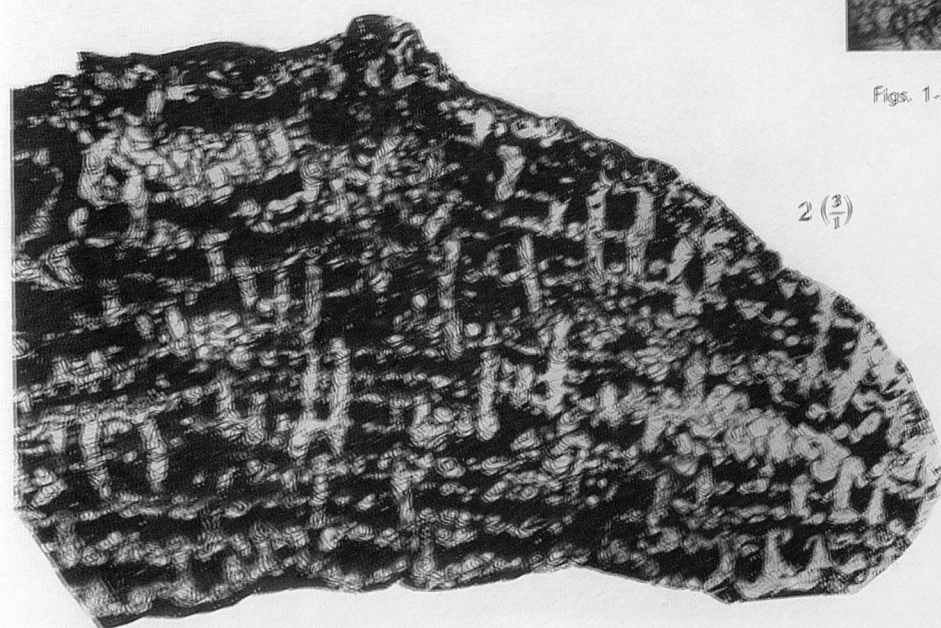 Figs. 1-
2 (3/1)